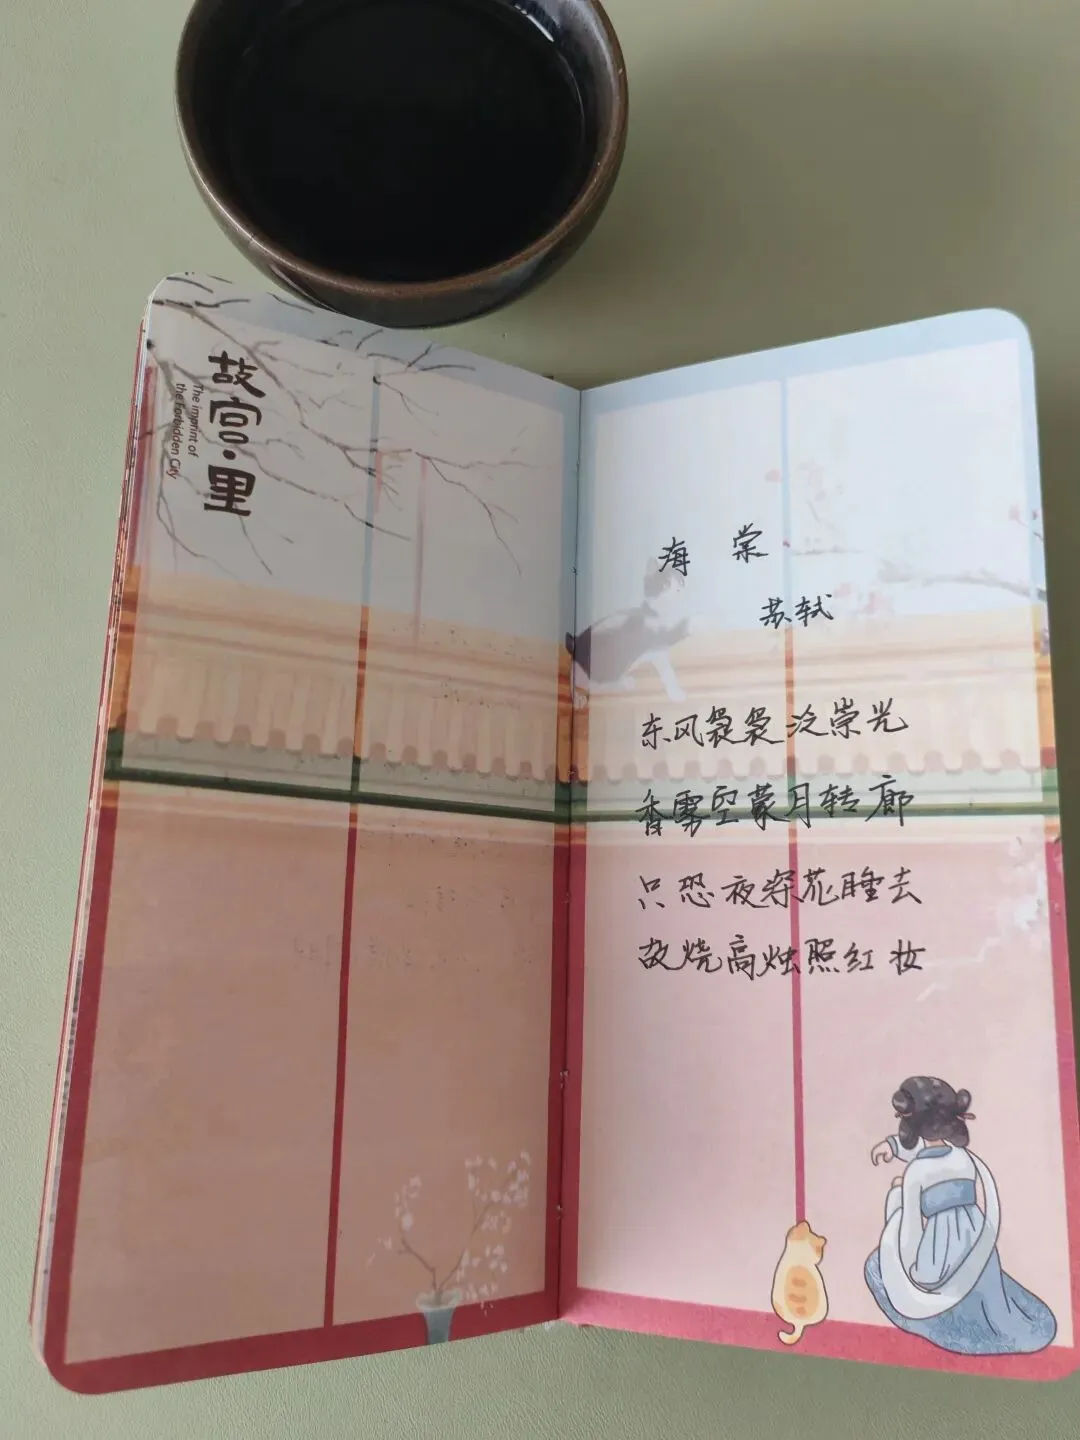 故宫·里
The imprint of
the Forbidden City
海棠
苏轼
东风袅袅泛崇光
香雾空蒙月转廊
只恐夜深花睡去
故烧高烛照红妆